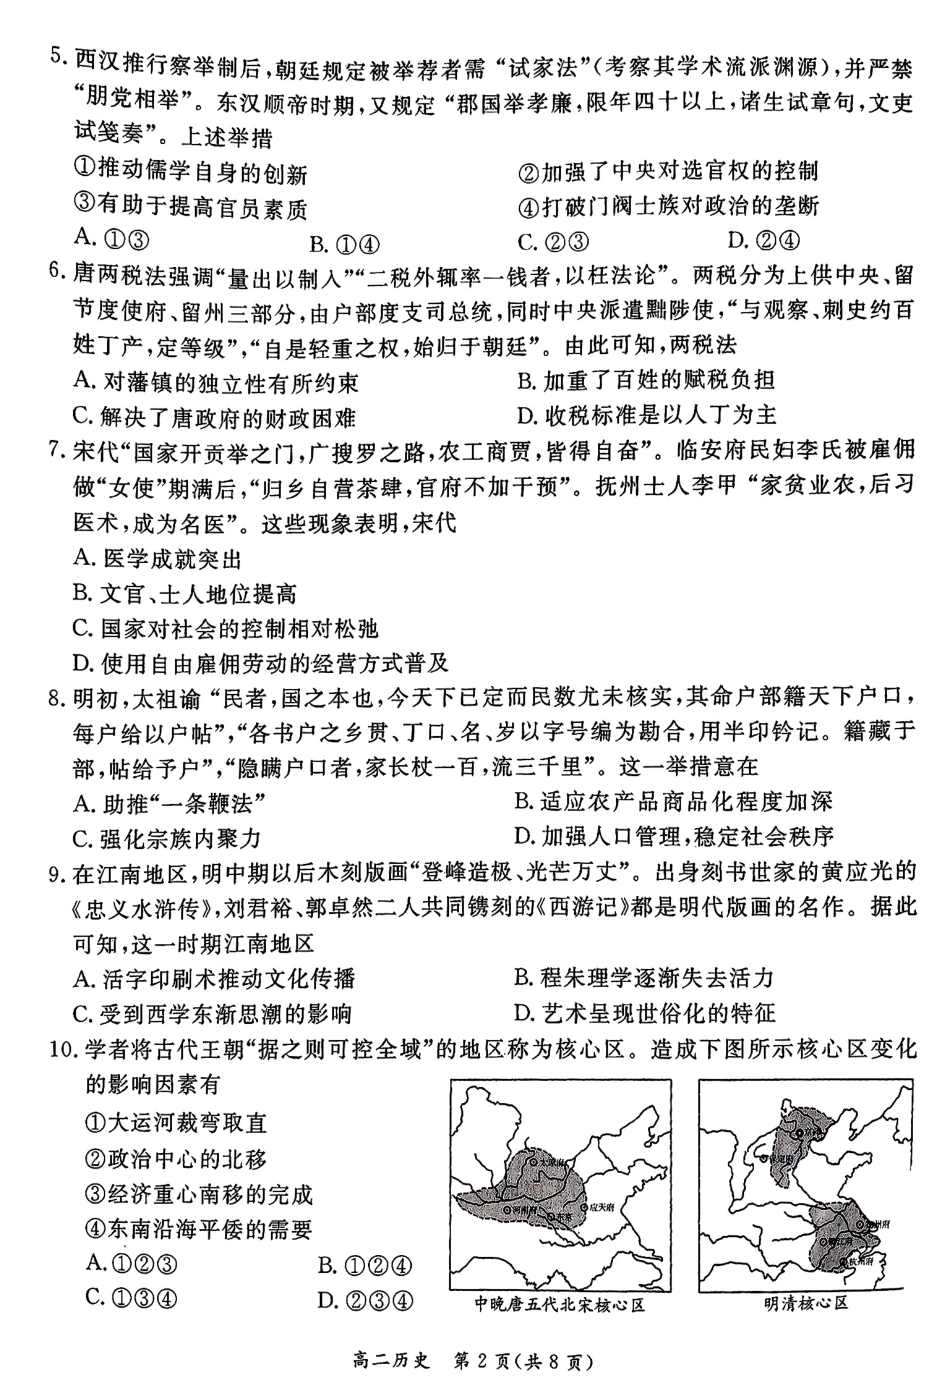 5. 西汉推行察举制后,朝廷规定被举荐者需“试家法”(考察其学术流派渊源),并严禁
“朋党相举”。东汉顺帝时期,又规定“郡国举孝廉,限年四十以上,诸生试章句,文吏
试笺奏”。上述举措
①推动儒学自身的创新 ②加强了中央对选官权的控制
③有助于提高官员素质 ④打破门阀士族对政治的垄断
A. ①③ B. ①④ C. ②③ D. ②④
6. 唐两税法强调“量出以制入”“二税外辄率一钱者,以枉法论”。两税分为上供中央、留
节度使府、留州三部分,由户部度支司总统,同时中央派遣黜陟使,“与观察、刺史约百
姓丁产,定等级”,“自是轻重之权,始归于朝廷”。由此可知,两税法
A. 对藩镇的独立性有所约束 B. 加重了百姓的赋税负担
C. 解决了唐政府的财政困难 D. 收税标准是以人丁为主
7. 宋代“国家开贡举之门,广搜罗之路,农工商贾,皆得自奋”。临安府民妇李氏被雇佣
做“女使”期满后,“归乡自营茶肆,官府不加干预”。抚州士人李甲“家贫业农,后习
医术,成为名医”。这些现象表明,宋代
A. 医学成就突出
B. 文官、士人地位提高
C. 国家对社会的控制相对松弛
D. 使用自由雇佣劳动的经营方式普及
8. 明初,太祖谕“民者,国之本也,今天下已定而民数尤未核实,其命户部籍天下户口,
每户给以户帖”,“各书户之乡贯、丁口、名、岁以字号编为勘合,用半印钤记。籍藏于
部,帖给予户”,“隐瞒户口者,家长杖一百,流三千里”。这一举措意在
A. 助推“一条鞭法” B. 适应农产品商品化程度加深
C. 强化宗族内聚力 D. 加强人口管理,稳定社会秩序
9. 在江南地区,明中期以后木刻版画“登峰造极、光芒万丈”。出身刻书世家的黄应光的
《忠义水浒传》,刘君裕、郭卓然二人共同镌刻的《西游记》都是明代版画的名作。据此
可知,这一时期江南地区
A. 活字印刷术推动文化传播 B. 程朱理学逐渐失去活力
C. 受到西学东渐思潮的影响 D. 艺术呈现世俗化的特征
10. 学者将古代王朝“据之则可控全域”的地区称为核心区。造成下图所示核心区变化
的影响因素有
①大运河裁弯取直
②政治中心的北移
③经济重心南移的完成
④东南沿海平倭的需要
A. ①②③ B. ①②④
C. ①③④ D. ②③④
太原府
河南府
东京
应天府
中晚唐五代北宋核心区
保定府
镇江府
杭州府
明清核心区
高二历史 第2页(共8页)